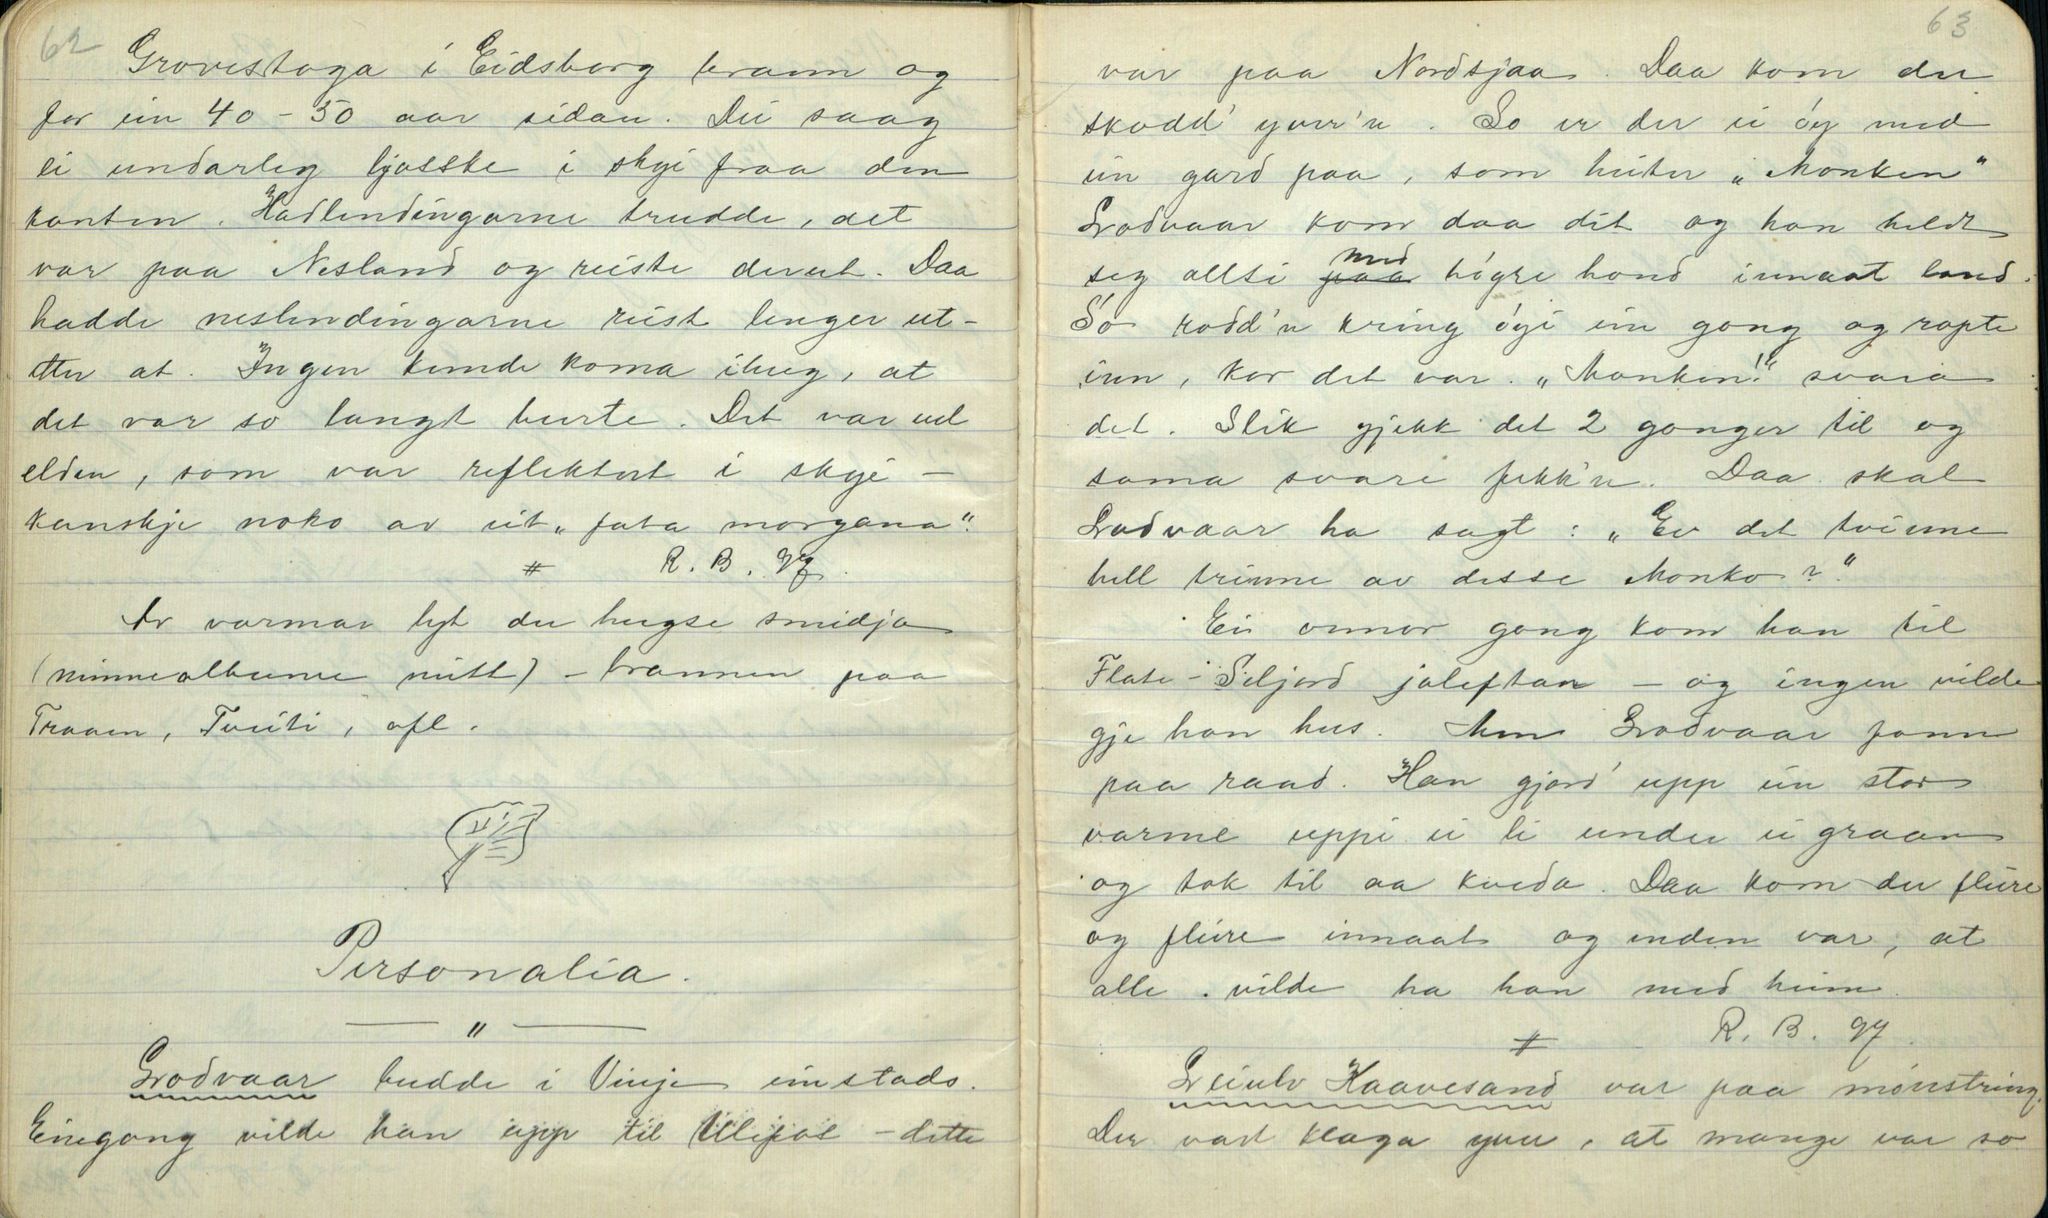 62
Grovestoga i Eidsborg brann og
for ein 40-50 aar sidan. Dei saag
ei undarleg ljosske i skyi fraa den
kanten. Kadlendingarne trudde, det
var paa Nesland og reiste derut. Daa
hadde neslendingarne reist lenger ut-
etter at. Ingen kunde koma ihug, at
det var so langt burte. Det var vel
elden, som var reflektert i skyi -
kanskje noko av eit "fata morgana".
# R. B. gg.
Av varmar lyt du hugse smidja
(minnealbume mitt) - brannen paa
Traaen, Tveiti, ofl.
Personalia.
— " —
Lodvaar budde i Vinje einstads.
Eingong vilde han upp til Ulejos - dette
63
var paa Nordsjaa. Daa kom der
skodd' yver'n. So er der ei öy med
ein gard paa, som heiter "Monken"
Lodvaar kom daa dit og han heldt
seg allti paa med högre hond innaat land.
So rodd'n kring öyi ein gong og ropte
inn, kor det var. "Monken!" svara
det. Slik gjekk det 2 gonger til og
sama svare fekk'n. Daa skal
Lodvaar ha sagt: "Er det tvinne
hell trinne av desse Monko?"
Ein annor gong kom han til
Flate-Seljord joleftan - og ingen vilde
gje han hus. Men Lodvaar fann
paa raad. Han gjord' upp ein stor
varme uppi ei li under ei graan
og tok til aa kveda. Daa kom der fleire
og fleire innaat og enden var, at
alle vilde ha han med heim.
# R. B. gg.
Leiulv Kaavesand var paa mönstring.
Der vart klaga yver, at mange var so